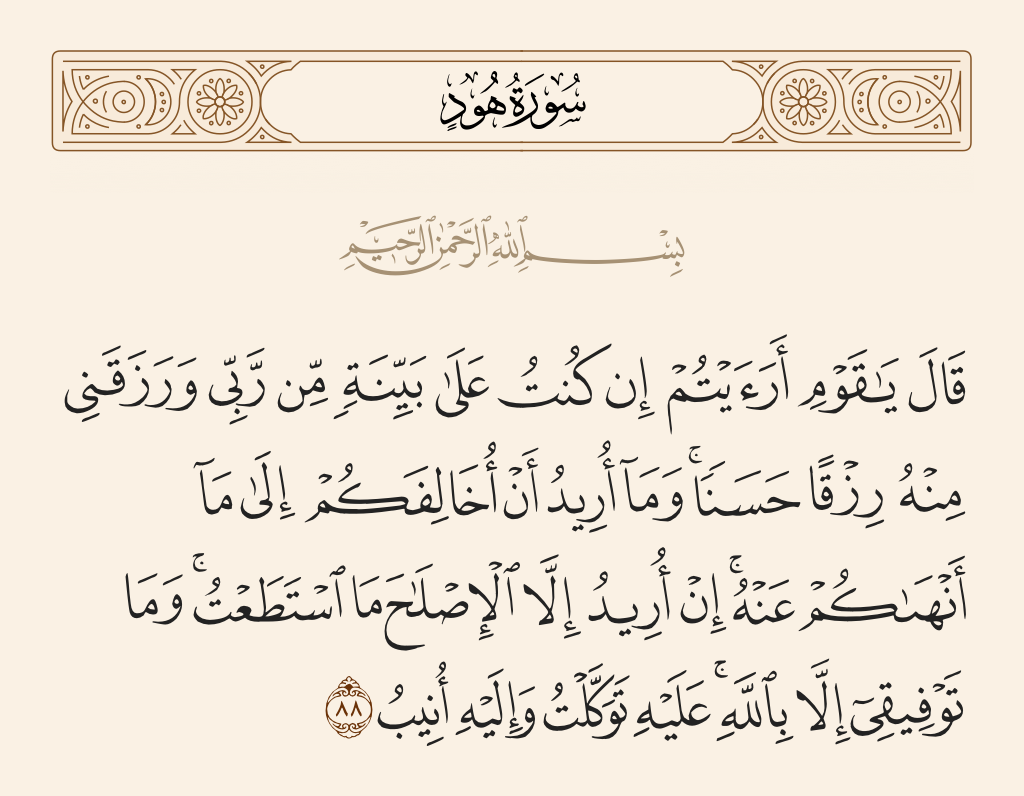 سُورَةُ هُودٍ
بِسْمِ ٱللَّهِ ٱلرَّحْمَٰنِ ٱلرَّحِيمِ
قَالَ يَٰقَوْمِ أَرَءَيْتُمْ إِن كُنتُ عَلَىٰ بَيِّنَةٍ مِّن رَّبِّى وَرَزَقَنِى
مِنْهُ رِزْقًا حَسَنًا ۚ وَمَآ أُرِيدُ أَنْ أُخَالِفَكُمْ إِلَىٰ مَآ
أَنْهَىٰكُمْ عَنْهُ ۚ إِنْ أُرِيدُ إِلَّا ٱلْإِصْلَٰحَ مَا ٱسْتَطَعْتُ ۚ وَمَا
تَوْفِيقِىٓ إِلَّا بِٱللَّهِ ۚ عَلَيْهِ تَوَكَّلْتُ وَإِلَيْهِ أُنِيبُ ٨٨